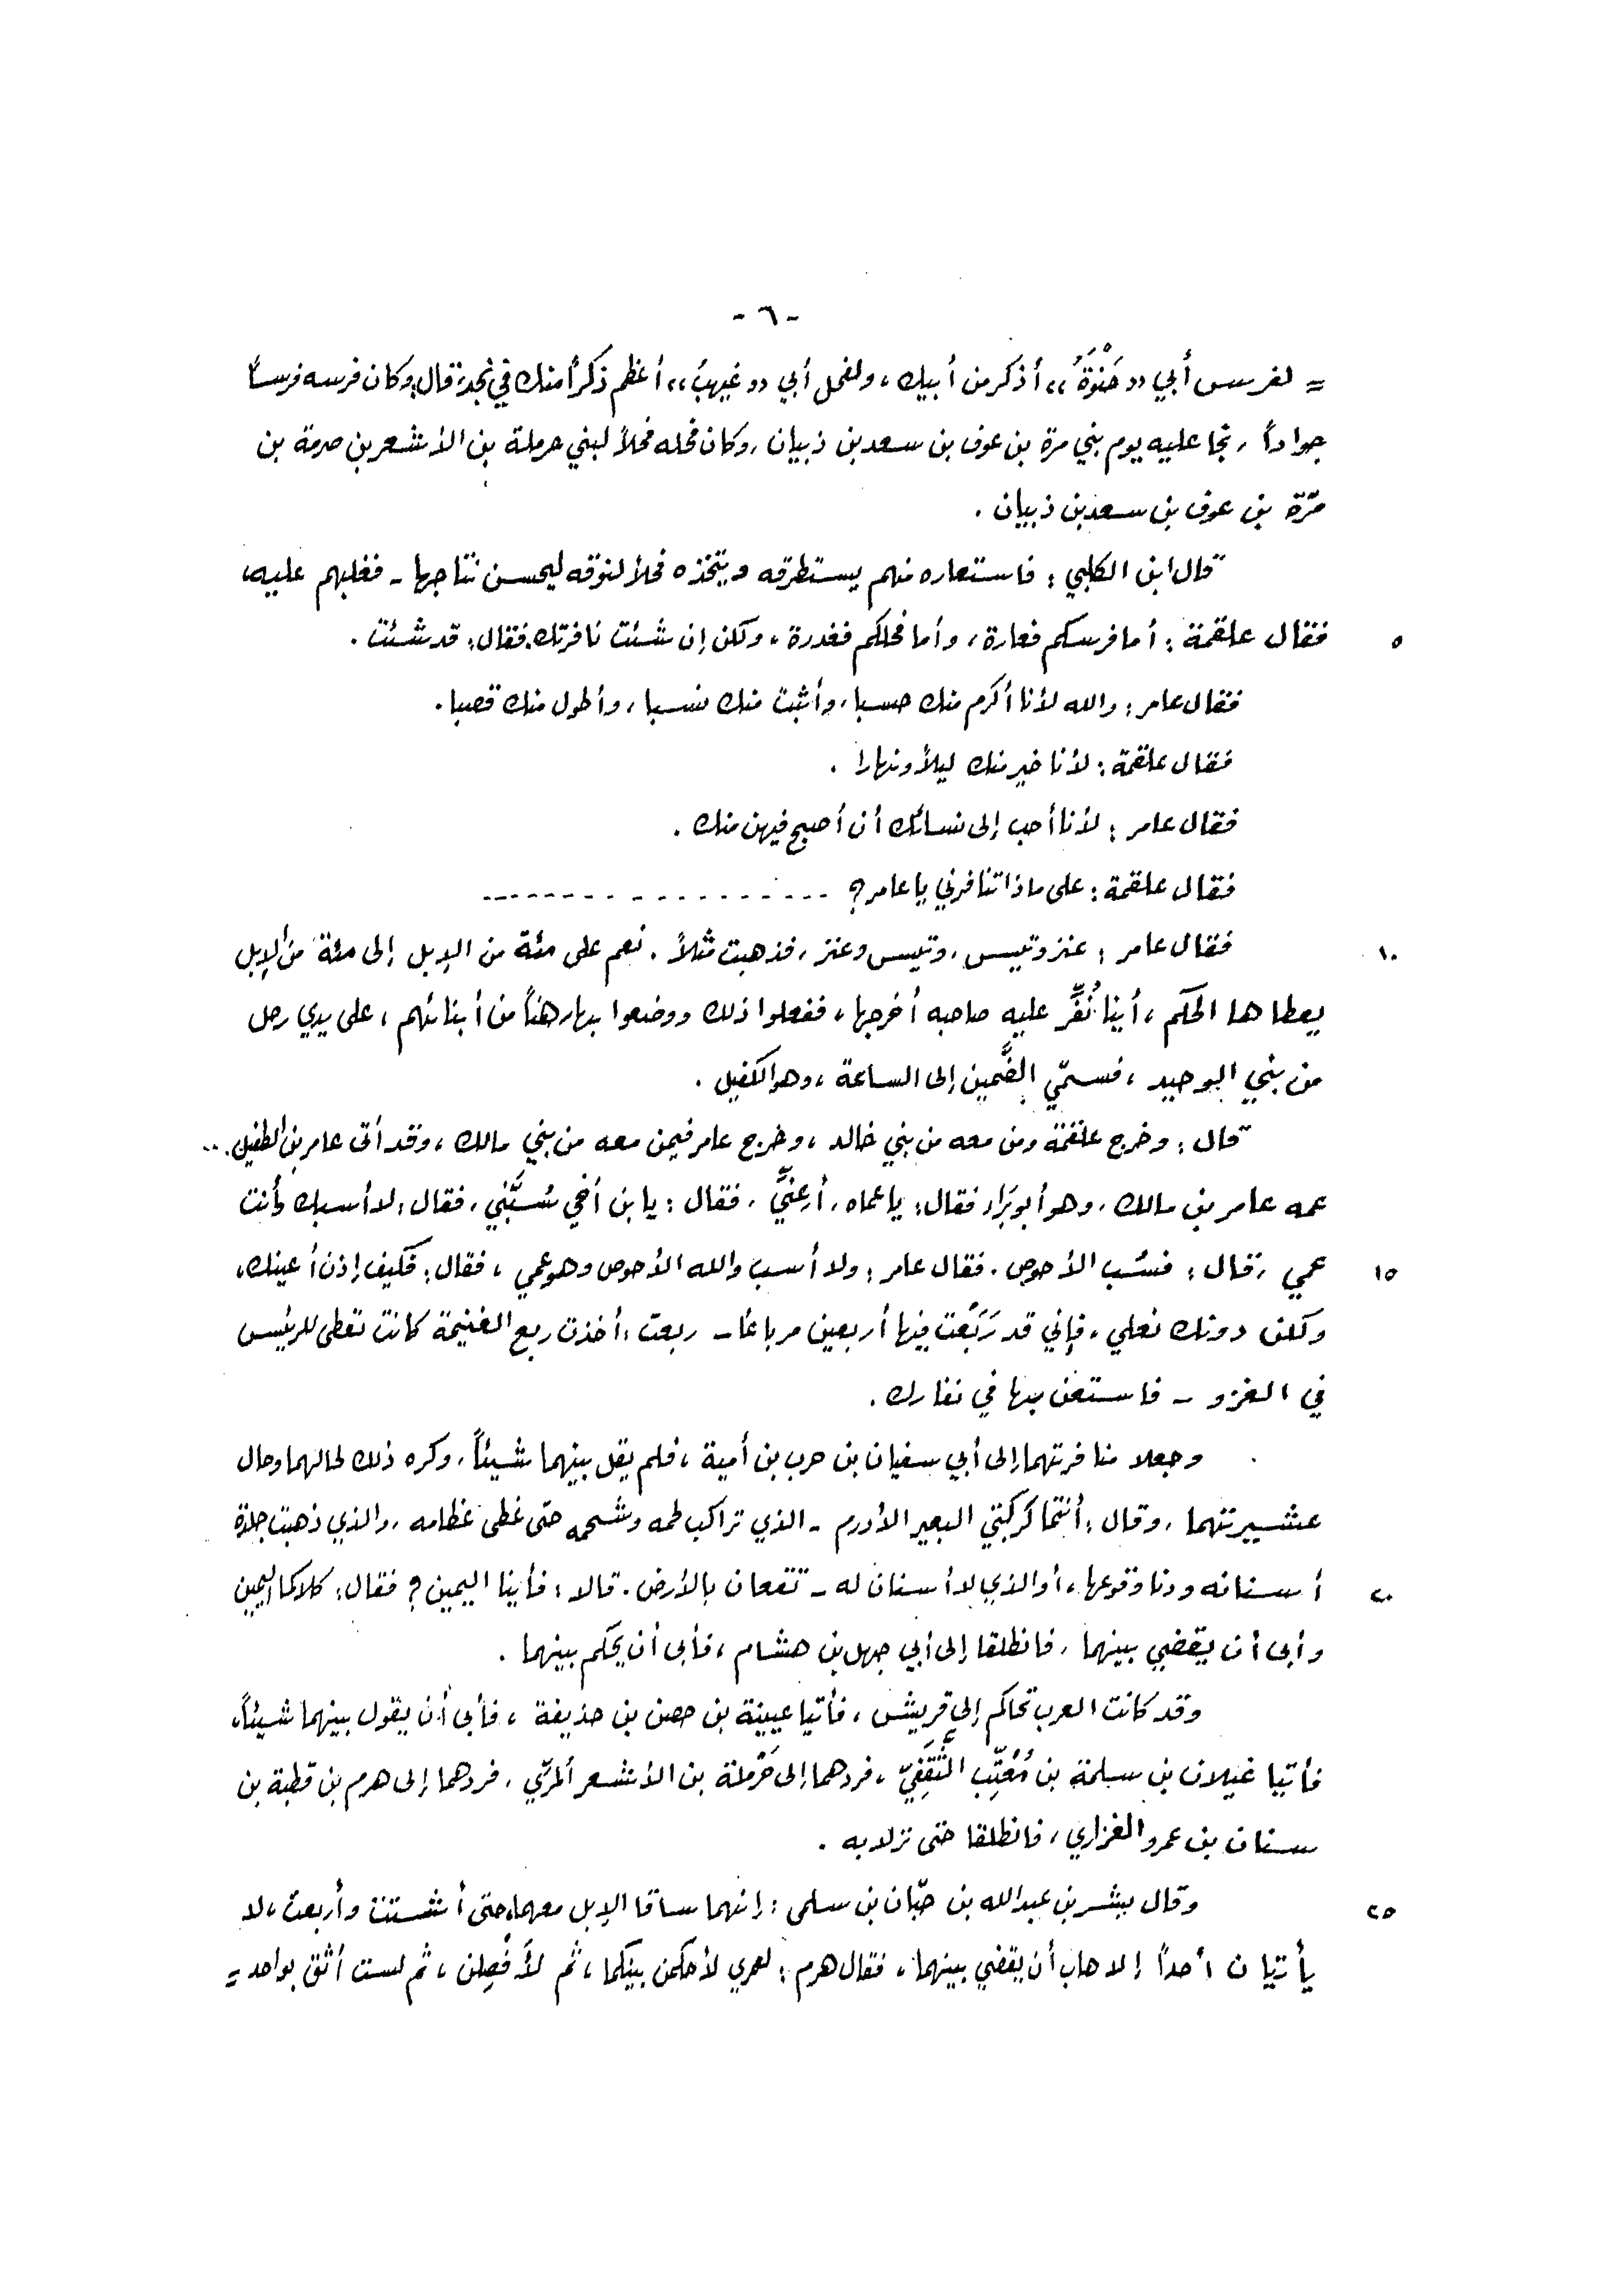 - ٦ -
= لفرس أبي «حَنْوَةُ» أذكر من أبيك، ولفحل أبي «غيهبُ» أعظم ذكراً منك في نجد، قال: وكان فرسه فرساً
جواداً، نجا عليه يوم بني مرة بن عوف بن سعد بن ذبيان، وكان فحله فحلاً لبني حرملة بن الأشعر بن صرمة بن
مرّة بن عوف بن سعد بن ذبيان .
قال ابن الكلبي : فاستعاره منهم يستطرقه ويتخذه فحلاً لنوقه ليحسن نتاجها - فغلبهم عليه،
٥ فقال علقمة : أما فرسكم فعارة، وأما فحلكم فغدرة، ولكن إن شئت نافرتك. فقال: قد شئت .
فقال عامر: والله لأنا أكرم منك حسبا، وأثبت منك نسبا، وأطول منك قصبا .
فقال علقمة : لأنا خير منك ليلاً ونهارا .
فقال عامر : لأنا أحب إلى نسائك أن أصبح فيهن منك .
فقال علقمة : على ماذا تنافرني يا عامر؟ - - - - - - - - - - - - - - - - -
١٠ فقال عامر : عنز وتيس، وتيس وعنز، فذهبت مثلاً . نعم على مئة من الإبل إلى مئة من الإبل
يعطاها الحكم، أينا نُفِّر عليه صاحبه أخرجها، ففعلوا ذلك ووضعوا بها رهناً من أبنائهم، على يدي رجل
من بني الوحيد، فسمّي الضَّمين إلى الساعة، وهو الكفيل .
قال : وخرج علقمة ومن معه من بني خالد، وخرج عامر فيمن معه من بني مالك، وقد أتى عامر بن الطفيل ..
عمه عامر بن مالك، وهو أبو بَرَاء فقال: يا عماه، أعِنّي، فقال : يا بن أخي سُبَّني، فقال: لا أسبك وأنت
١٥ عمي، قال : فسُب الأحوص. فقال عامر : ولا أسب والله الأحوص وهو عمي، فقال: فكيف إذن أعينك،
ولكن دونك نعلي، فإني قد رَبَعْت فيها أربعين مرباعًا - ربعت: أخذت ربع الغنيمة كانت تعطى للرئيس
في الغزو - فاستعن بها في نفارك .
وجعلا منافرتهما إلى أبي سفيان بن حرب بن أمية، فلم يقل بينهما شيئاً، وكره ذلك لحالهما وحال
عشيرتهما، وقال : أنتما كركبتي البعير الأدرم - الذي تراكب لحمه وشحمه حتى غطى عظامه، والذي ذهبت جلدة
٢٠ أسنانه ودنا وقوعها، أو الذي لا أسنان له - تقعان بالأرض. قالا : فأينا اليمين؟ فقال: كلاكما اليمين
وأبى أن يقضي بينهما، فانطلقا إلى أبي جهل بن هشام، فأبى أن يحكم بينهما .
وقد كانت العرب تحاكم إلى قريش، فأتيا عيينة بن حصن بن حذيفة، فأبى أن يقول بينهما شيئاً،
فأتيا غيلان بن سلمة بن مُعَتِّب الثَّقَفِيّ، فردهما إلى حَرْملة بن الأشعر المرّي، فردهما إلى هرم بن قطبة بن
سنان بن عمرو الفزاري، فانطلقا حتى نزلا به .
٢٥ وقال بشر بن عبد الله بن حبّان بن سلمى : إنهما ساقا الإبل معهما، حتى أشتت وأربعت، لا
يأتيان أحداً إلا هاب أن يقضي بينهما، فقال هرم : لعمري لأحكمن بينكما، ثم لأفصِلن، ثم لست أثق بواحد =